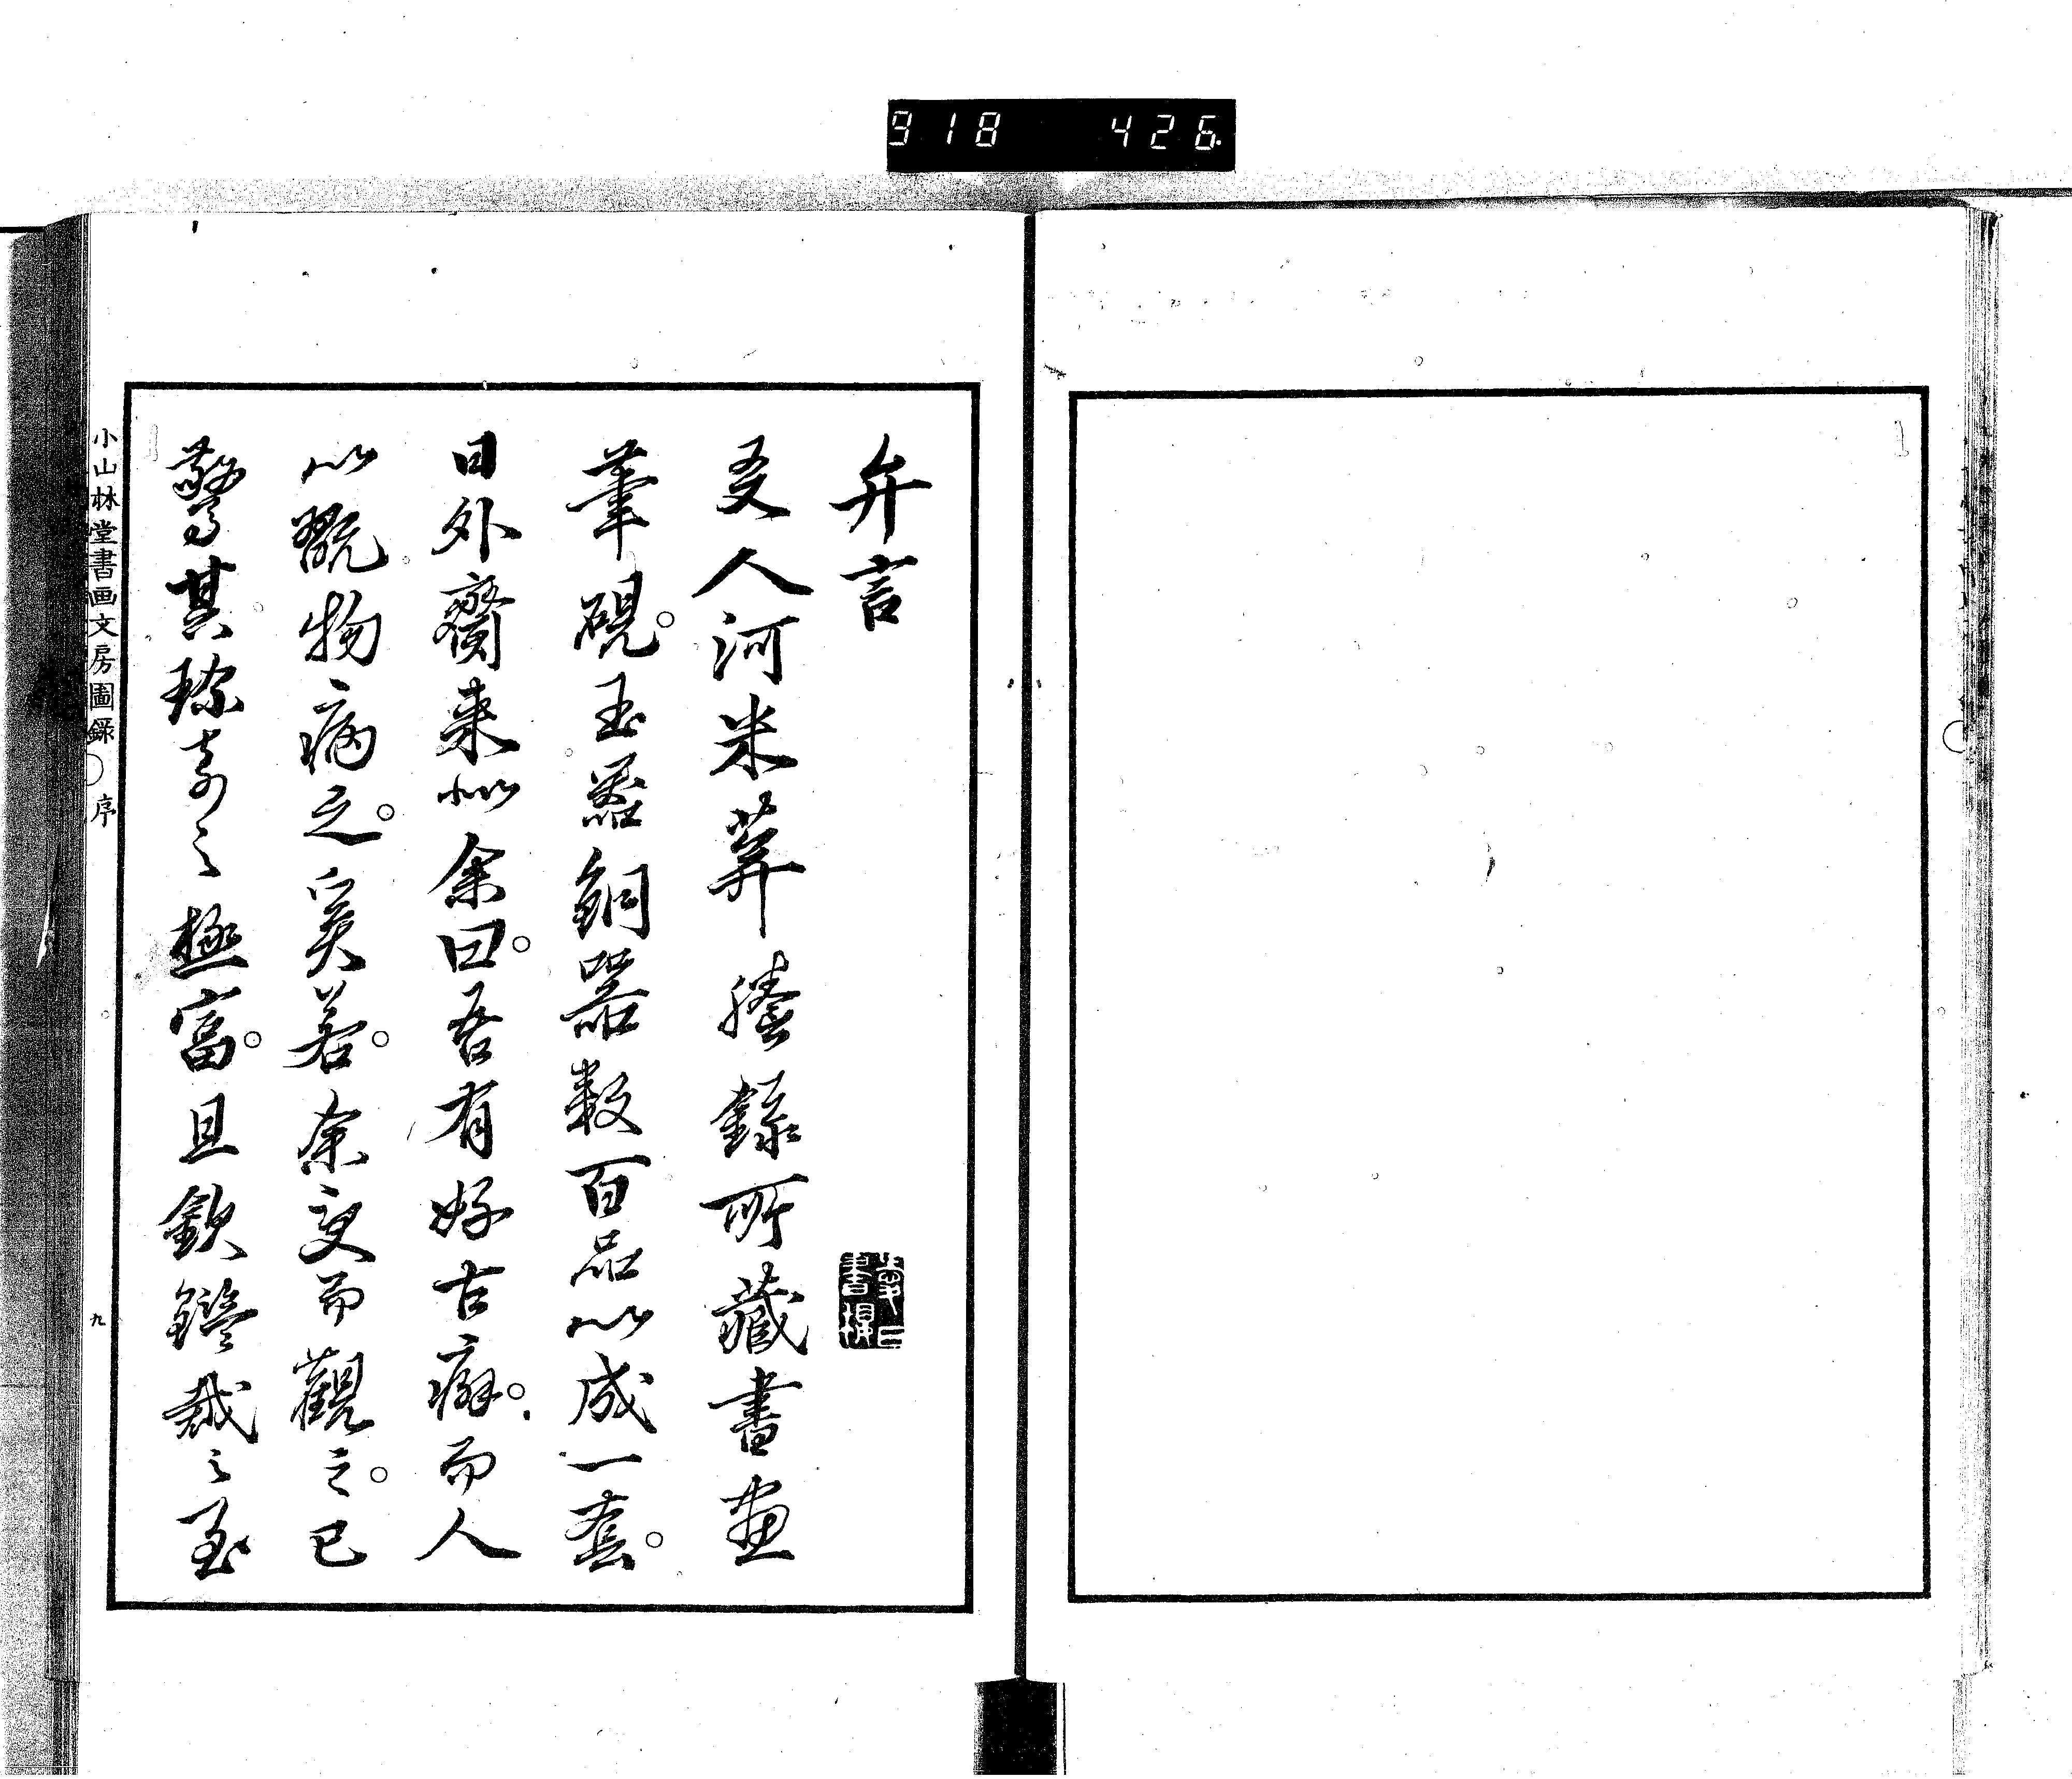 918 426
弁言
友人河米葊謄錄所藏書畫
筆硯。玉器銅器數百品以成一套。
日外齎来似余曰。吾有好古癖。而人
以翫物病之。奚若。余受而觀之。已
驚其珎奇之極富。且欽鑑裁之至
小山林堂書画文房圖錄 序
九